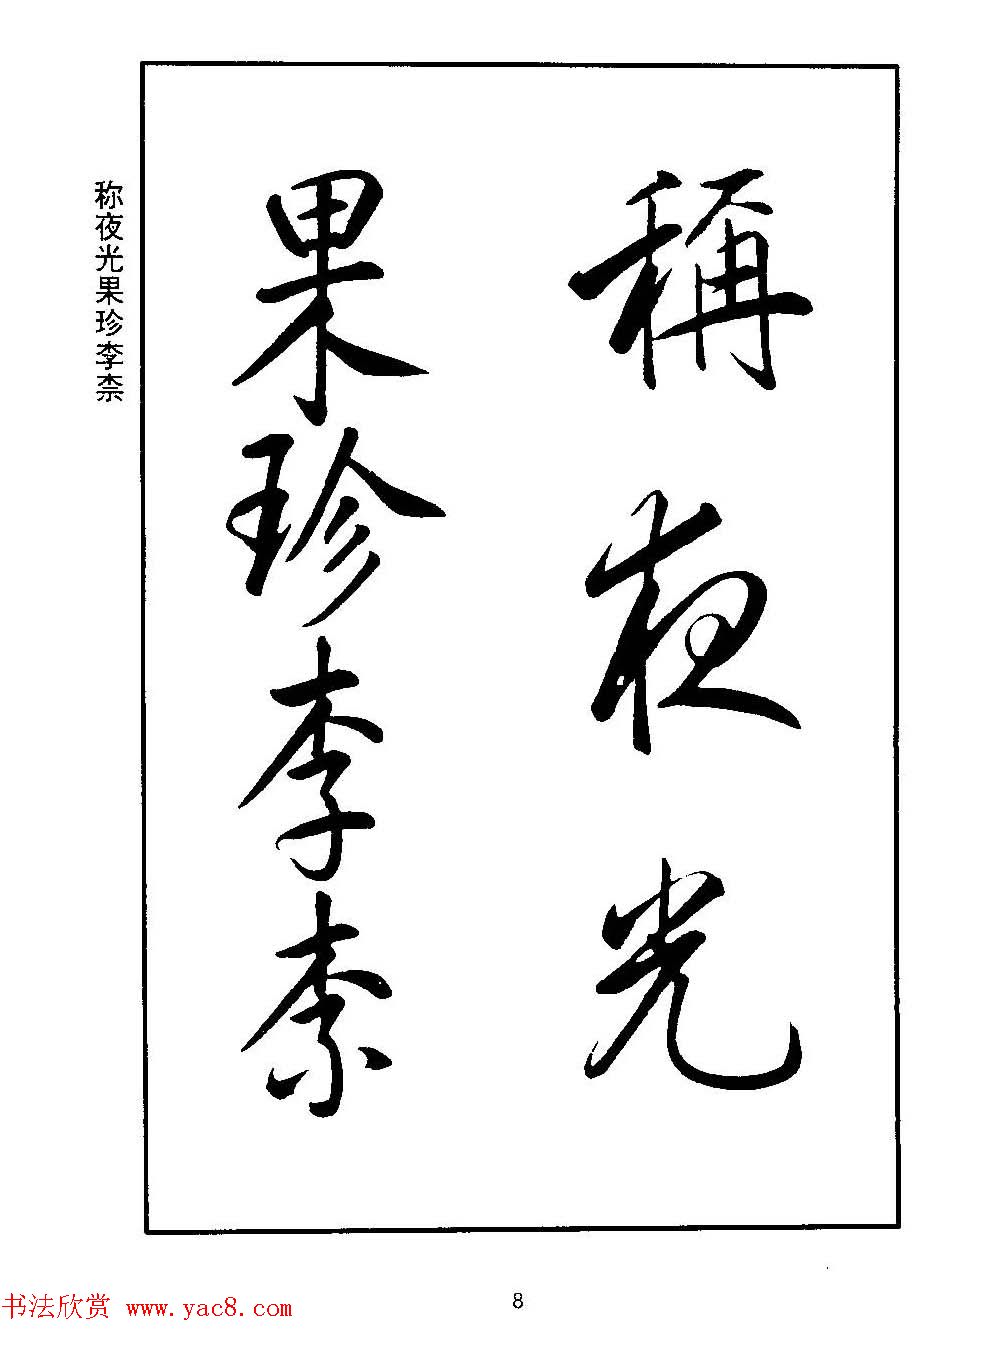 稱夜光
果珍李柰
称夜光果珍李柰
8
书法欣赏 www.yac8.com